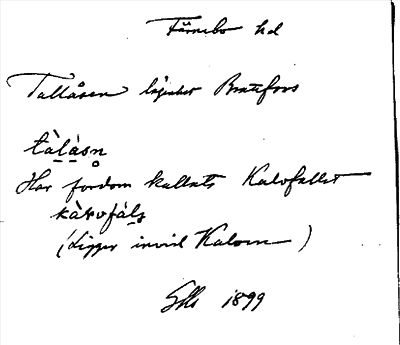 Färnebo hd
Tallåsen lägenhet Brattfors
tàlàsn̥
Har fordom kallats Kalvfallet
kàlvofàlt
(Ligger invid Kalven)
1899